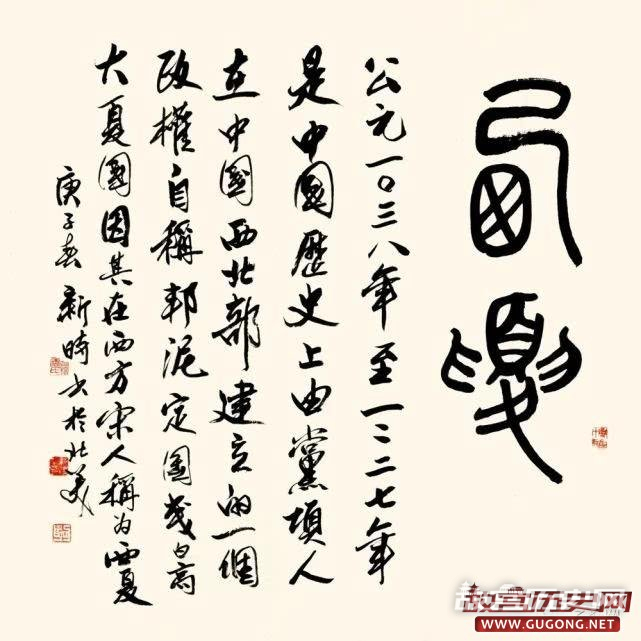 西夏
公元一〇三八年至一二二七年
是中國歷史上由黨項人
在中國西北部建立的一個
政權自稱邦泥定國或白高
大夏國因其在西方宋人稱為西夏
庚子春新時书於北美
故宫历史网
WWW.GUGONG.NET